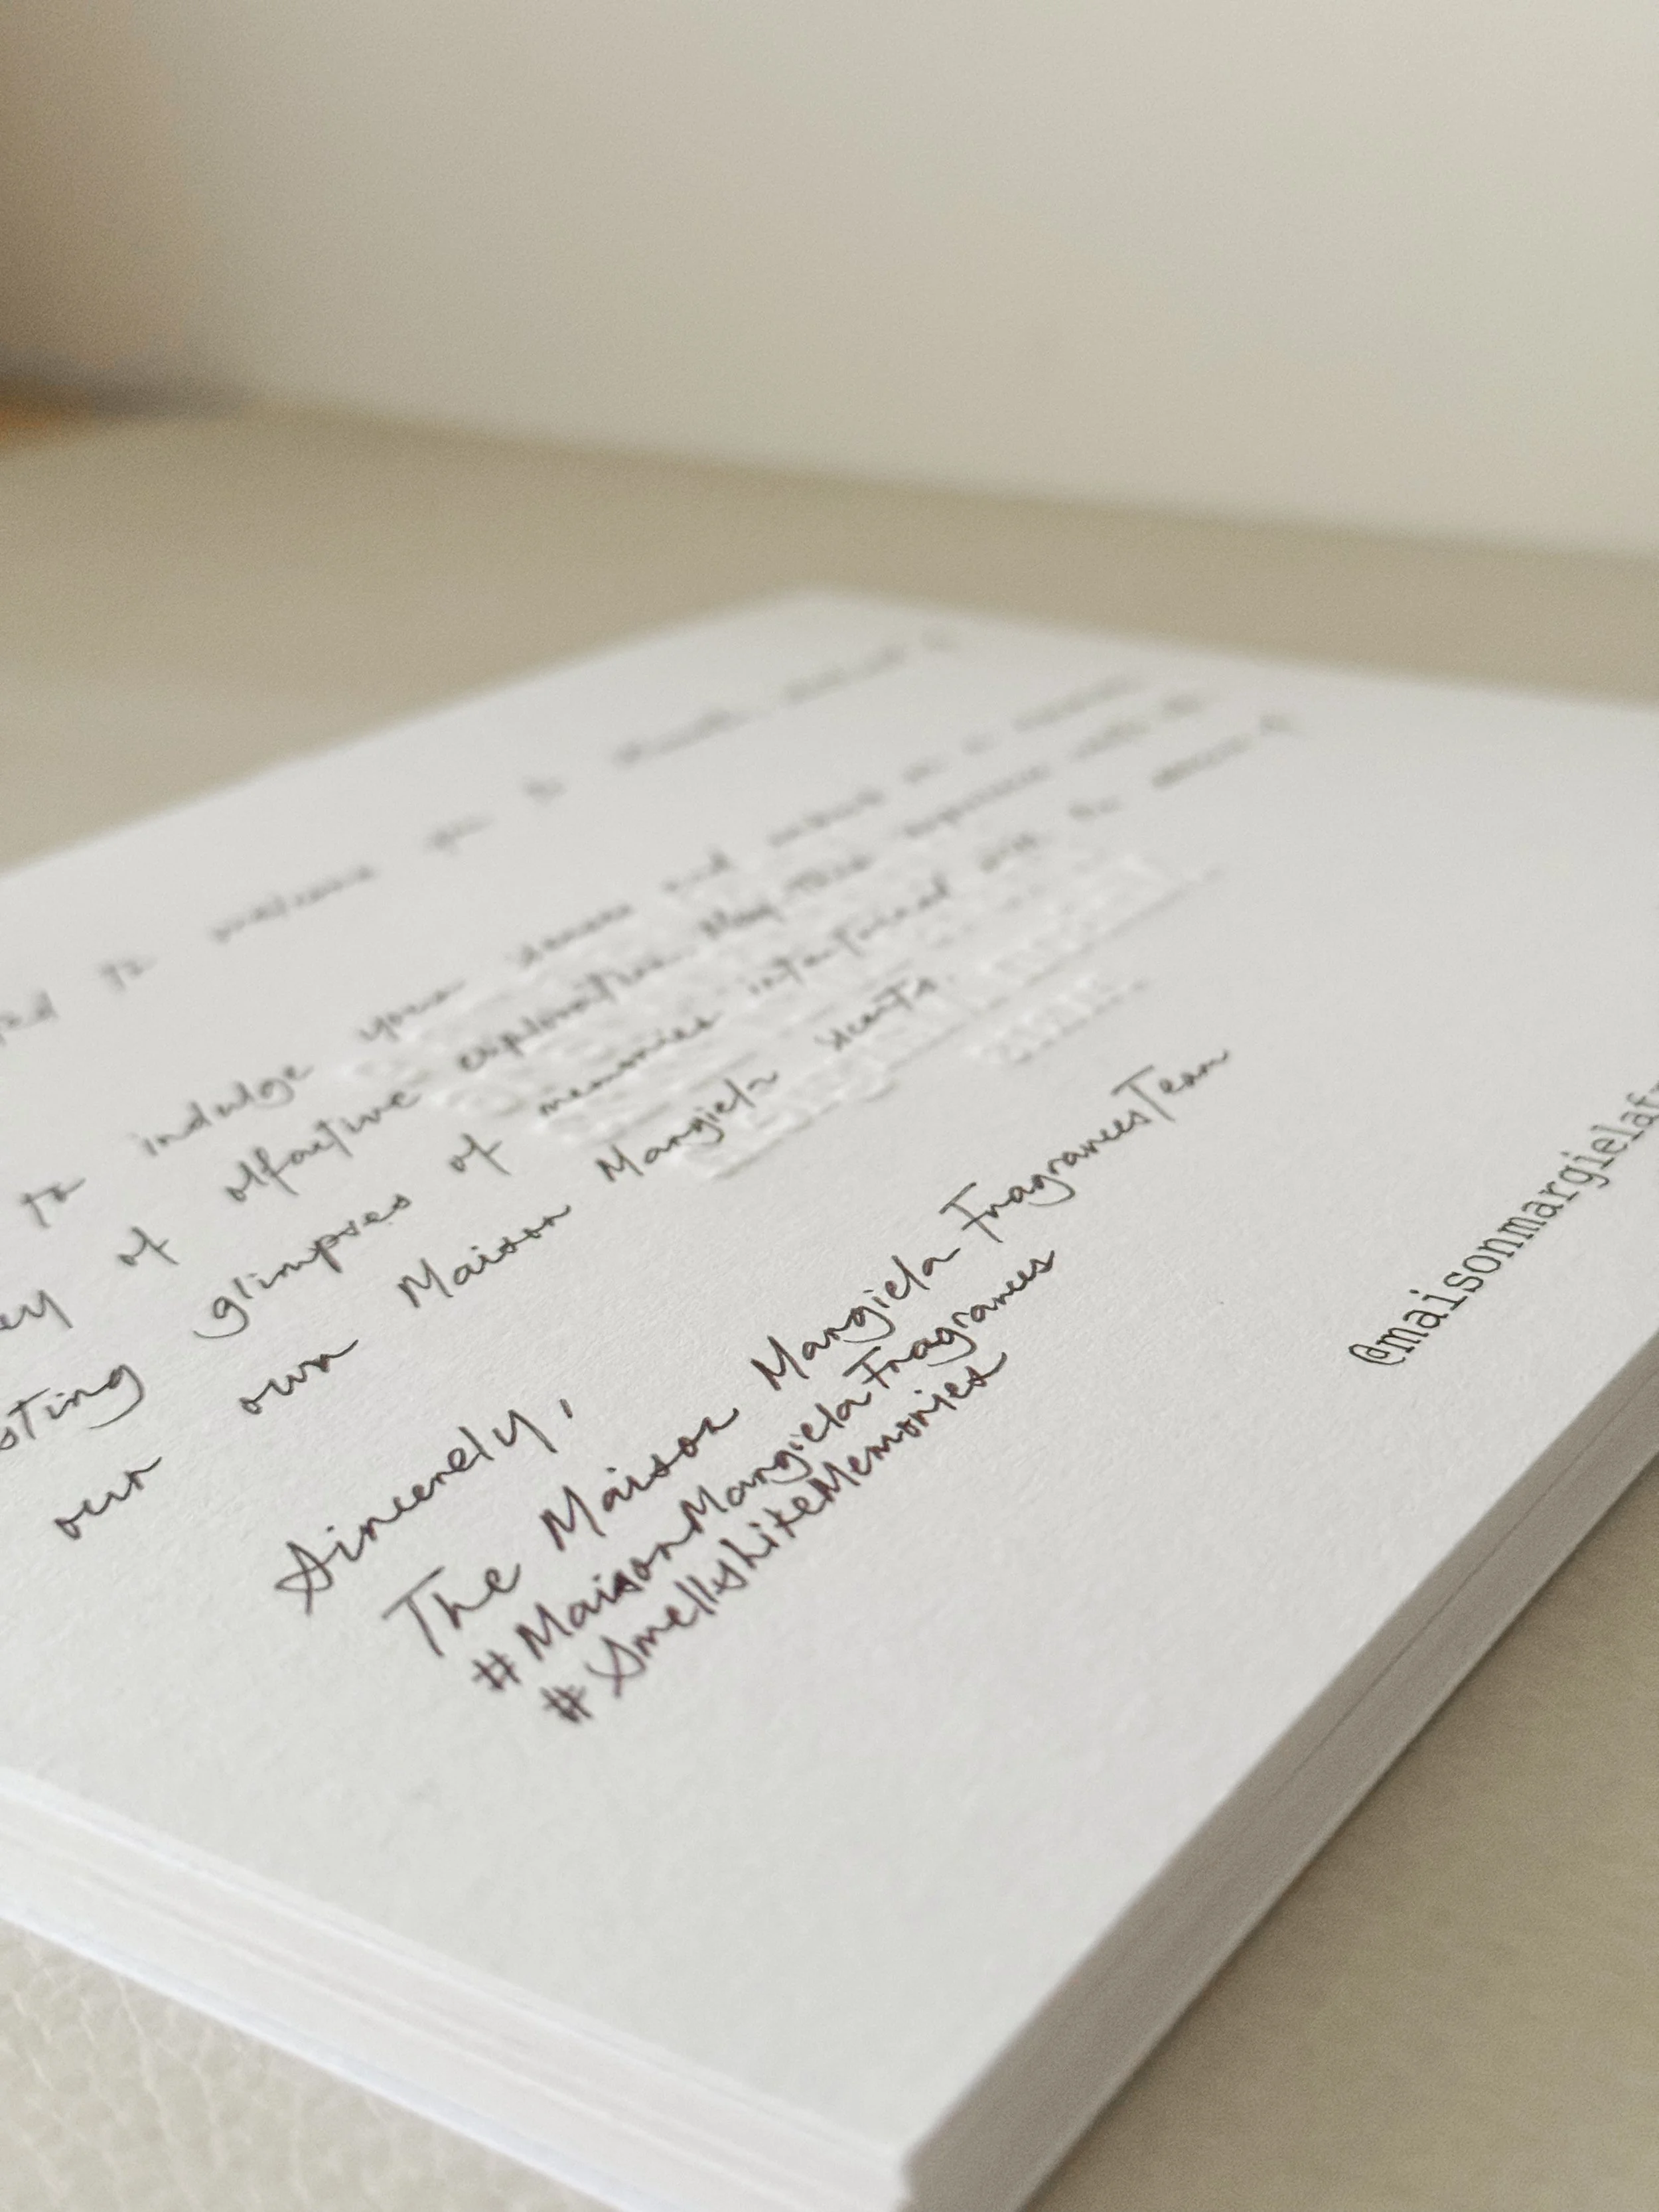 to welcome you to
to indulge your senses and embark on a
of olfactive exploration. May this experience
glimpses of memories intertwined
our own Maison Margiela scents.
Sincerely,
The Maison Margiela Fragrances Team
#MaisonMargielaFragrances
#SmellsLikeMemories
@maisonmargielaf